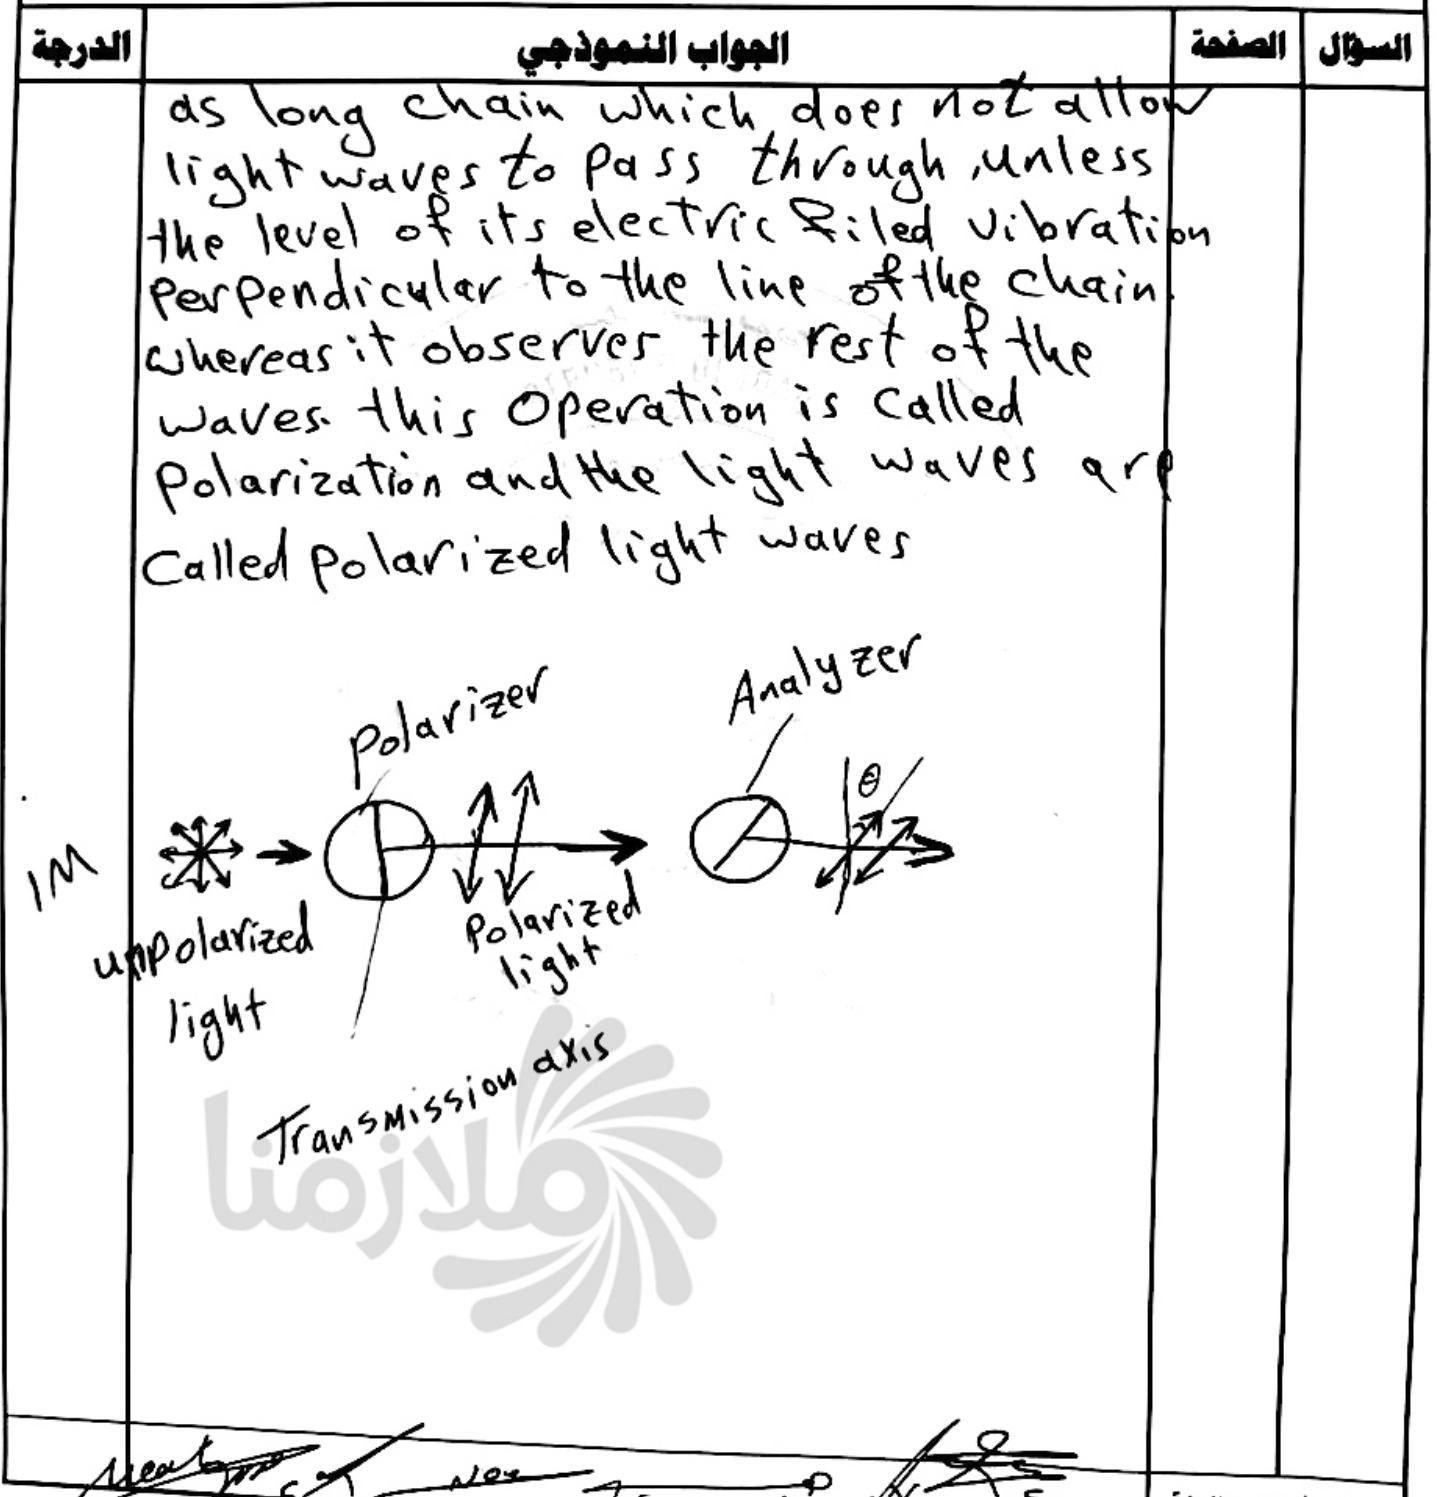 السؤال الصفحة الجواب النموذجي الدرجة
as long chain which does not allow
light waves to pass through, unless
the level of its electric filed vibration
perpendicular to the line of the chain.
whereas it observes the rest of the
waves. this operation is called
polarization and the light waves are
called polarized light waves
Polarizer
Analyzer
θ
1M
unpolarized
light
Polarized
light
Transmission axis
ملازمنا